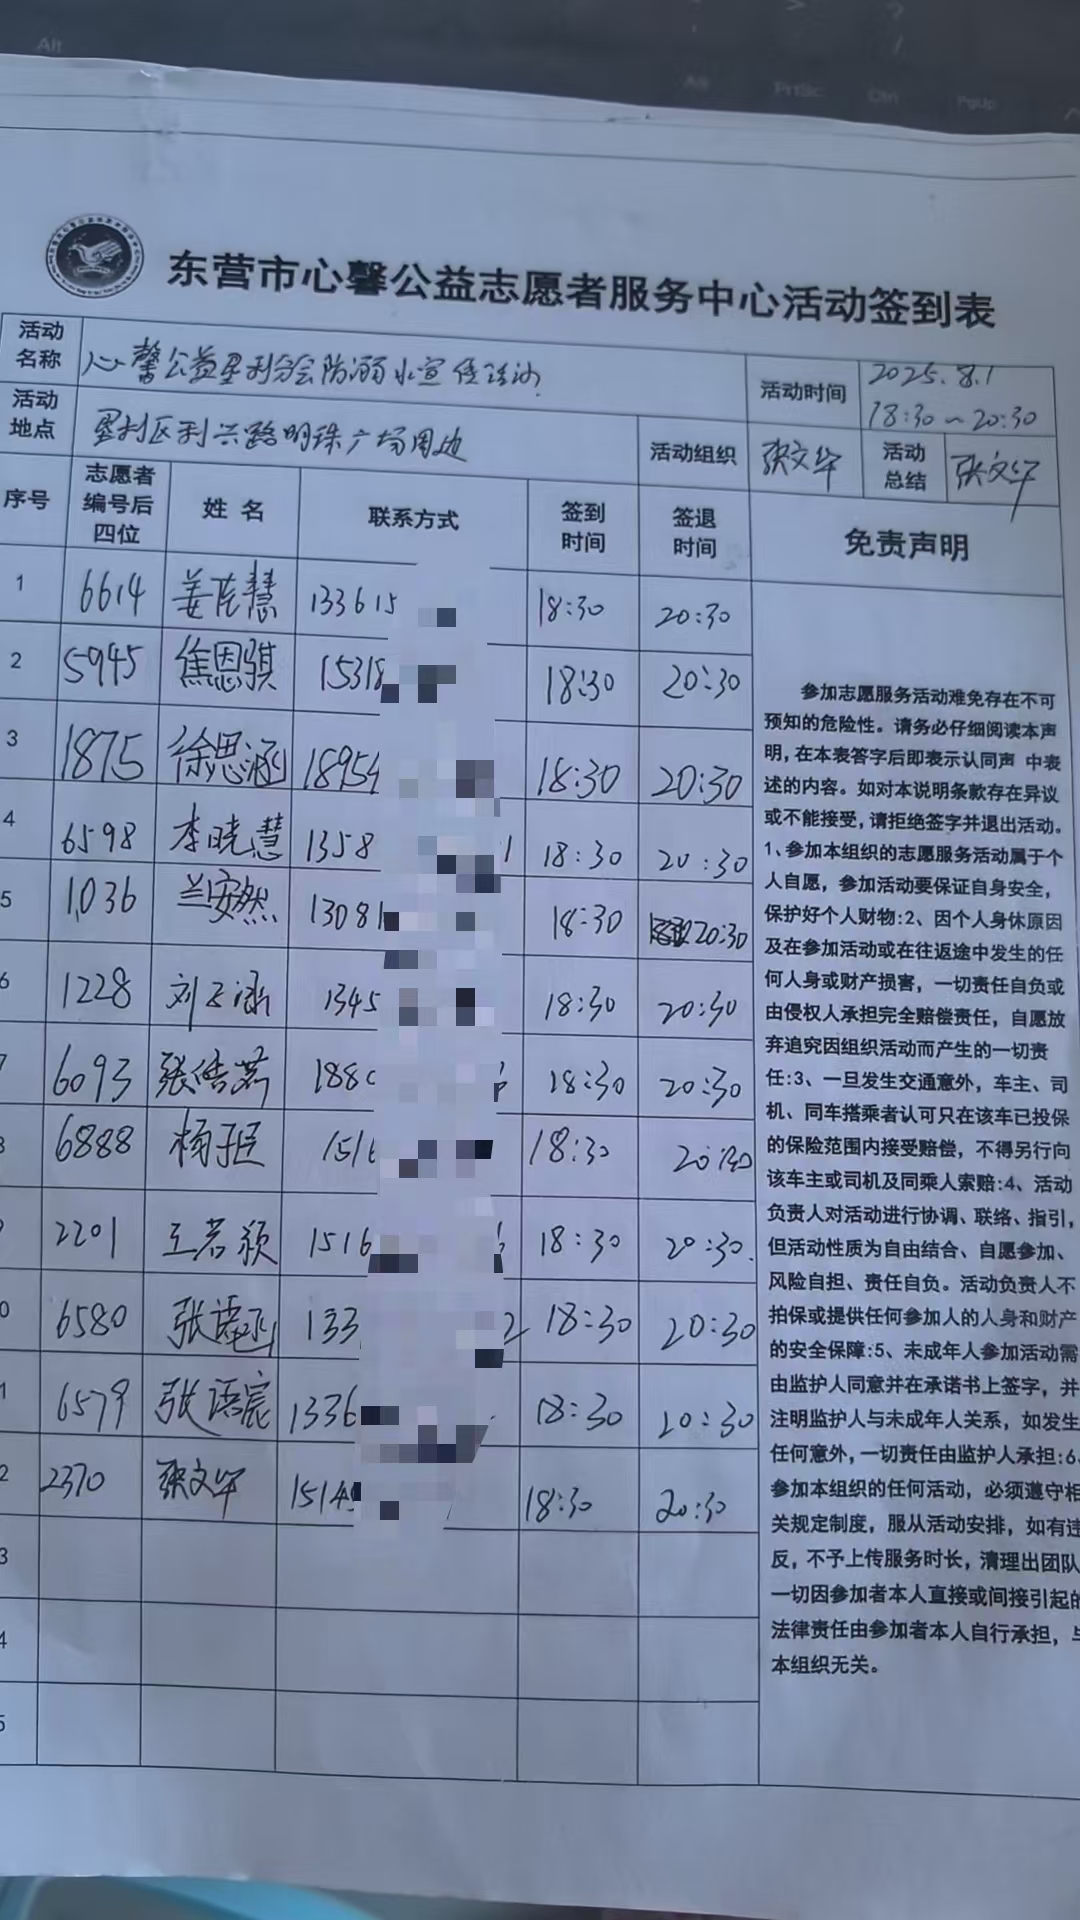 东营市心馨公益志愿者服务中心活动签到表
活动名称 心馨公益垦利分会防溺水宣传活动 活动时间 2025.8.1 18:30~20:30
活动地点 垦利区利兴路明珠广场周边 活动组织 张文华 活动总结 张文华
序号 志愿者编号后四位 姓名 联系方式 签到时间 签退时间 免责声明
1 6614 姜 慧 133615 18:30 20:30
2 5945 焦恩骐 15318 18:30 20:30
3 1875 徐思涵 18954 18:30 20:30
4 6598 李晓慧 1358 1 18:30 20:30
5 1036 兰安然 13081 18:30 20:30
6 1228 刘 涵 1345 18:30 20:30
7 6093 张 1880 18:30 20:30
6888 杨 1516 18:30 20:30
2201 王若颖 1516 18:30 20:30
0 6580 张语 133 2 18:30 20:30
1 6579 张语宸 1336 18:30 20:30
2 2370 张文华 1514 18:30 20:30
3
4
5
参加志愿服务活动难免存在不可
预知的危险性。请务必仔细阅读本声
明,在本表签字后即表示认同声 中表
述的内容。如对本说明条款存在异议
或不能接受,请拒绝签字并退出活动。
1、参加本组织的志愿服务活动属于个
人自愿，参加活动要保证自身安全，
保护好个人财物:2、因个人身休原因
及在参加活动或在往返途中发生的任
何人身或财产损害，一切责任自负或
由侵权人承担完全赔偿责任，自愿放
弃追究因组织活动而产生的一切责
任:3、一旦发生交通意外，车主、司
机、同车搭乘者认可只在该车已投保
的保险范围内接受赔偿，不得另行向
该车主或司机及同乘人索赔:4、活动
负责人对活动进行协调、联络、指引，
但活动性质为自由结合、自愿参加、
风险自担、责任自负。活动负责人不
拍保或提供任何参加人的人身和财产
的安全保障:5、未成年人参加活动需
由监护人同意并在承诺书上签字，并
注明监护人与未成年人关系，如发生
任何意外，一切责任由监护人承担:6、
参加本组织的任何活动，必须遵守相
关规定制度，服从活动安排，如有违
反，不予上传服务时长，清理出团队
一切因参加者本人直接或间接引起的
法律责任由参加者本人自行承担，与
本组织无关。